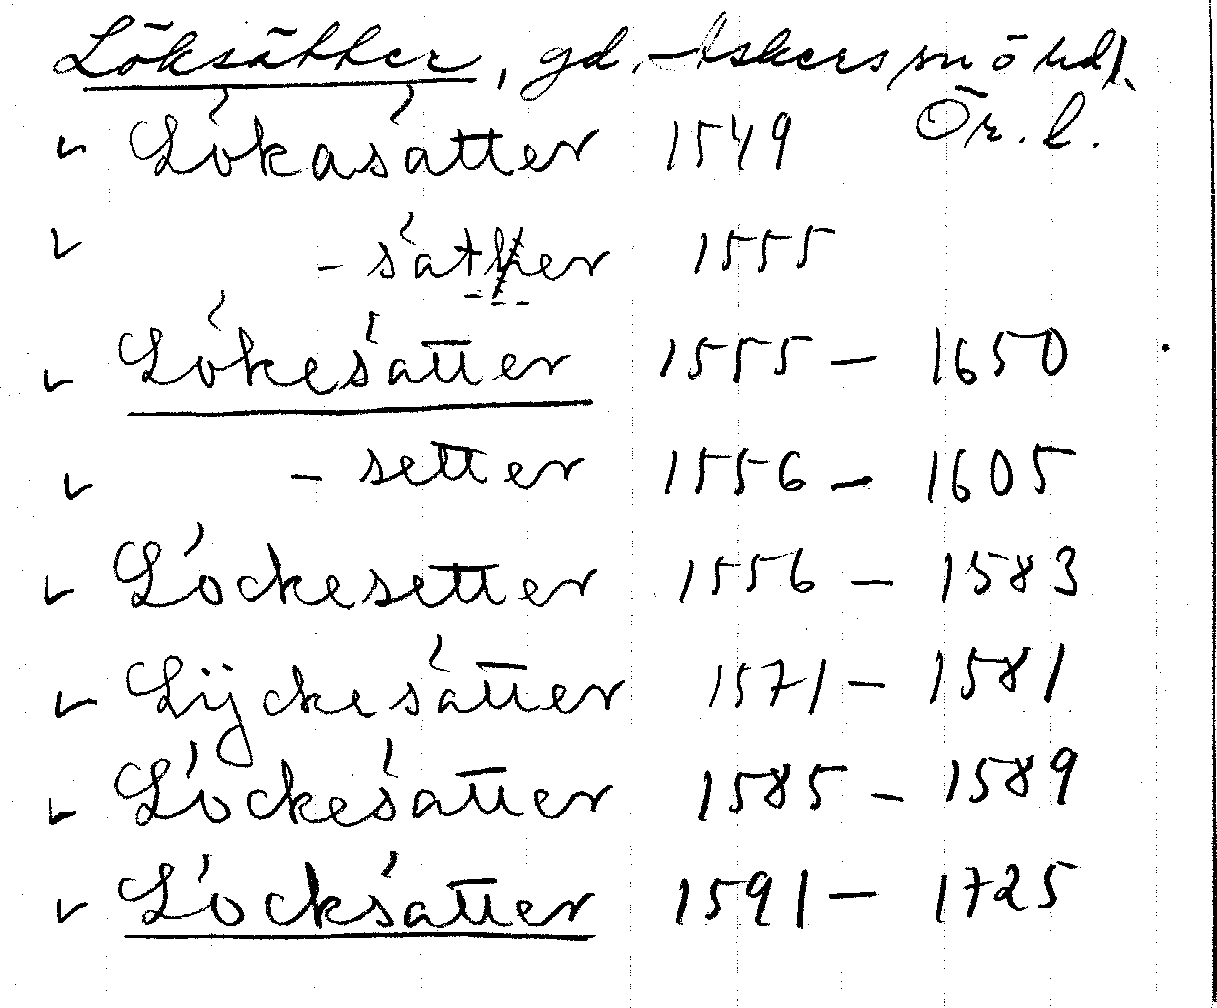 Löksätter, gd, Askersunds hd,
Ör. l.
Lökasätter 1549
- sät̶her 1555
Lökesätter 1555 – 1650
- setter 1556 – 1605
Löckesetter 1556 – 1583
Lÿckesätter 1571 – 1581
Löckesätter 1585 – 1589
Löcksätter 1591 – 1725